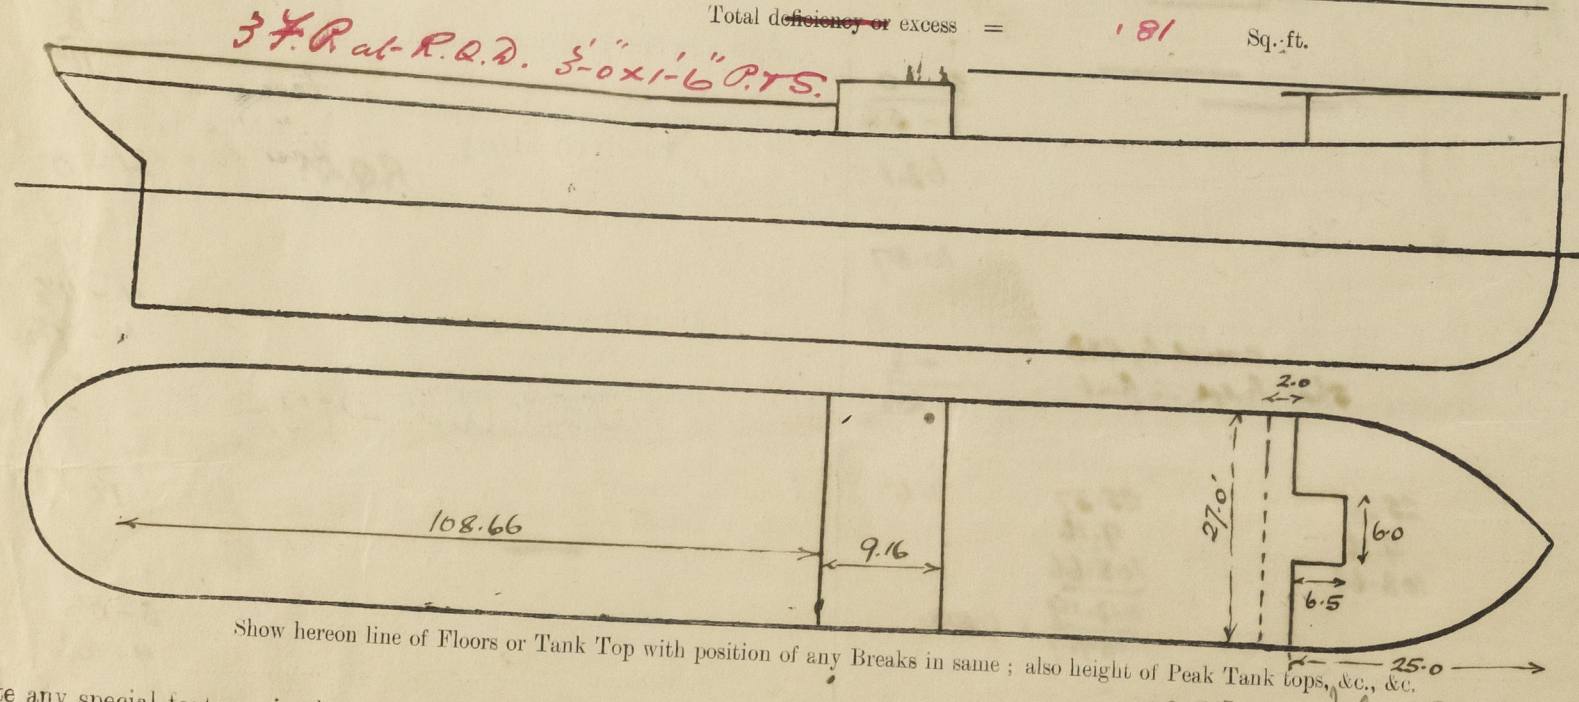 Total deficiency or excess = .81 Sq. ft.
3 F.P. at R.Q.D. 3'-0" x 1'-6" P. & S.
2.0
27.0'
108.66
9.16
6.0
6.5
25.0
Show hereon line of Floors or Tank Top with position of any Breaks in same ; also height of Peak Tank tops, &c., &c.
any special